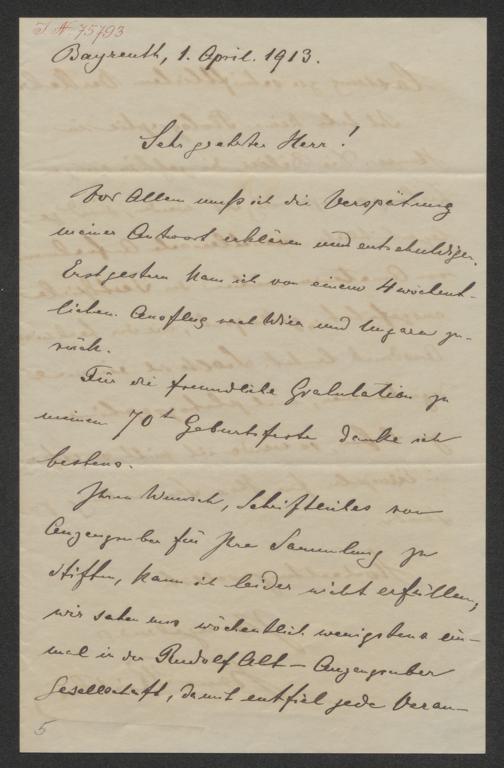 I. N. 75793
Bayreuth, 1. April. 1913.
Sehr geehrter Herr!
Vor Allem muß ich die Verspätung
meiner Antwort erklären und entschuldigen.
Erst gestern kam ich von einem 4 wöchent-
lichen Ausflug nach Wien und Ungarn zu-
rück.
Für die freundliche Gratulation zu
meinem 70t Geburtsfeste danke ich
bestens.
Ihren Wunsch, Schriftliches von
Anzengruber für Ihre Sammlung zu
stiften, kann ich leider nicht erfüllen;
wir sahen uns wöchentlich wenigstens ein-
mal in der Rudolf Alt - Anzengruber
Gesellschaft, damit entfiel jede Veran-
5